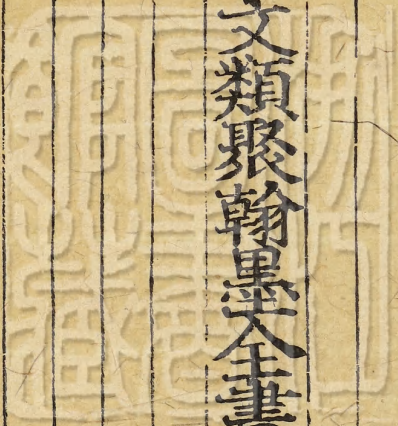 文類聚翰墨全書